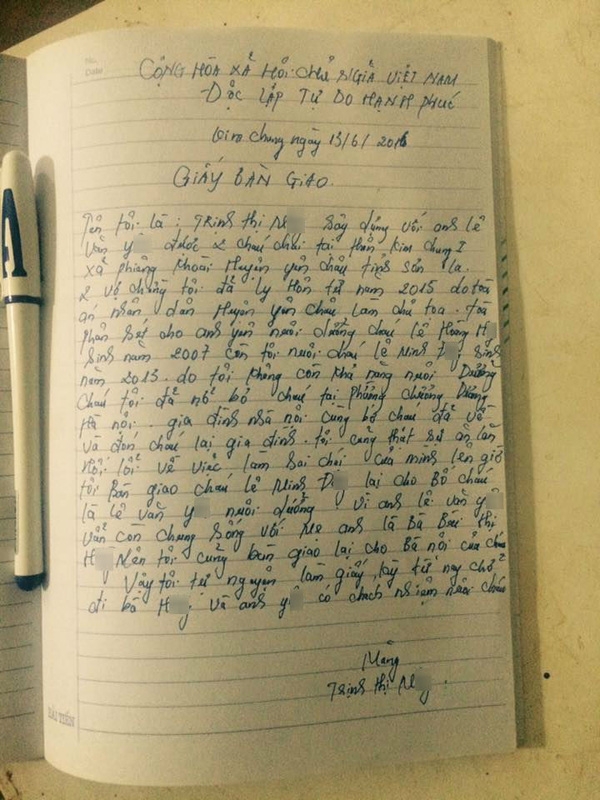 No.
Date
CỘNG HÒA XÃ HỘI CHỦ NGHĨA VIỆT NAM
ĐỘC LẬP TỰ DO HẠNH PHÚC
chung ngày 13/6/2016
GIẤY BÀN GIAO
Tên tôi là: Trịnh thị N Sây dựng với anh lê
văn y được 2 cháu chai tại thôn Kim chung I
xã phiêng khoài Huyện yên châu tỉnh sơn la.
2 vợ chồng tôi đã ly Hôn từ năm 2015 do tòa
án nhân dân Huyện yên châu làm chủ tọa. tòa
phán sét cho anh yên nuôi dưỡng cháu lê Hồng H
Sinh năm 2007 còn tôi nuôi cháu lê Minh Sinh
năm 2013. do tôi không còn khả năng nuôi Dưỡng
cháu tôi đã bỏ cháu tại Phường chương Dương
Hà nội. gia đình nhà nội cùng bố cháu đã về
và đón cháu lại gia đình. tôi cũng thật sự ăn lăn
Hối lỗi về việc làm sai chái của mình lên giờ
tôi bàn giao cháu lê Minh D lại cho Bố cháu
là lê văn y nuôi dưỡng. vì anh lê văn y
vẫn còn chung sống với Mẹ anh là Bà Bùi thị
H Nên tôi cũng bàn giao lại cho Bà nội của cháu
Vậy tôi tự nguyện làm giấy, kể từ nay chở
đi bà H và anh y có chách nhiệm nuôi cháu
Trịnh thị N
HẢI TIẾN
A